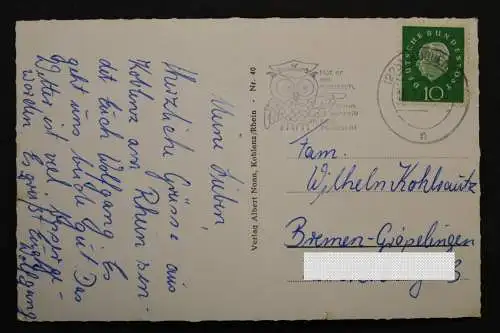 Meine Lieben,
Herzliche Grüsse aus
Koblenz am Rhein sen-
det Euch Wolfgang. Es
geht uns beide gut. Das
Wetter ist viel
worden. Es grüßt Euch
Wolfgang
Verlag Albert Nonn, Koblenz/Rhein - Nr. 40
DEUTSCHE BUNDESPOST
10
Fam.
Wilhelm Kohlsautz
Bremen-Gröpelingen